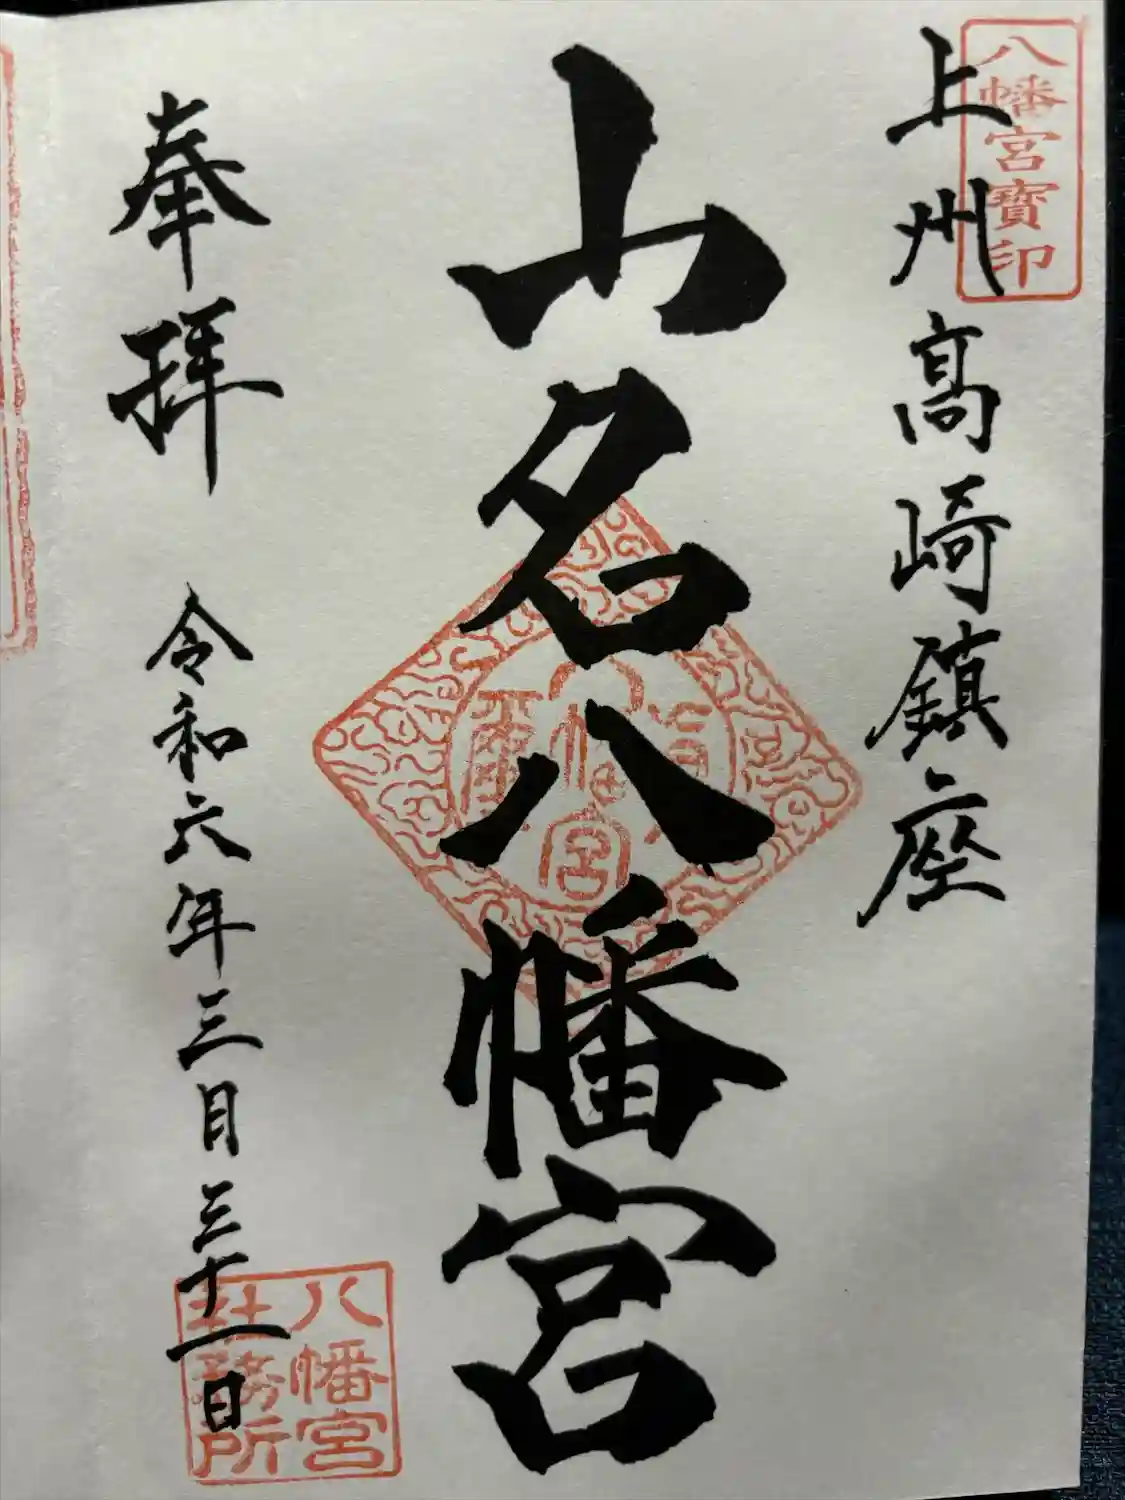 八幡宮寶印
上州高崎鎮座
山名八幡宮
奉拝
令和六年三月三十一日
八幡宮
社務所